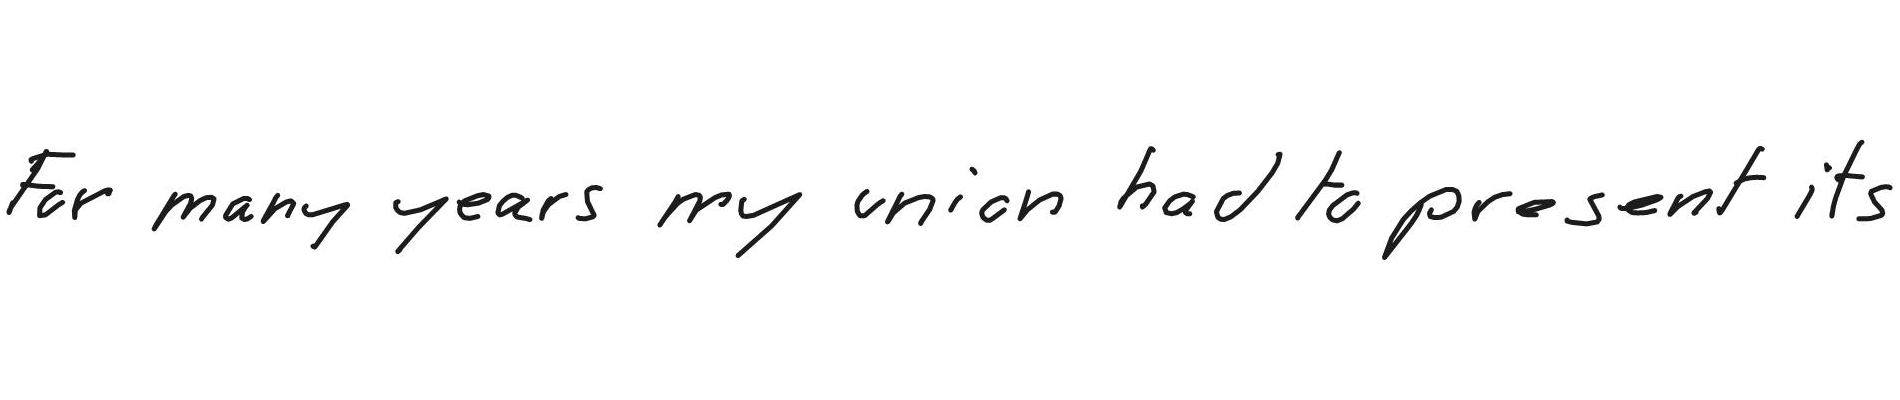 For many years my union had to present its